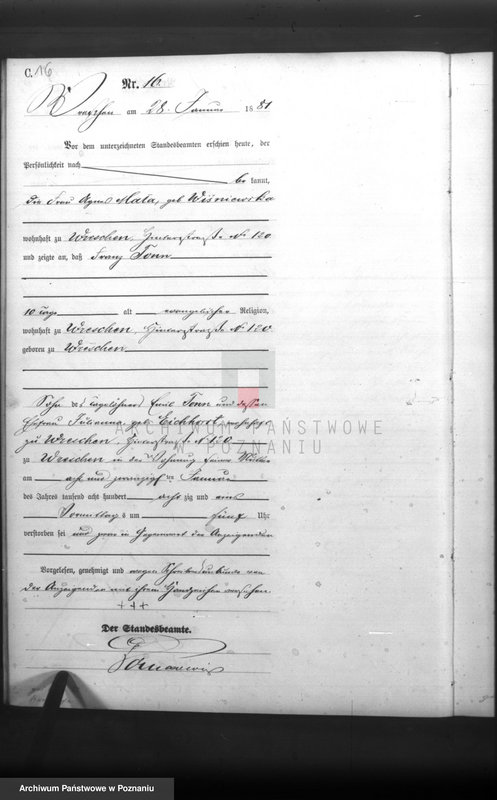 C. 16
Nr. 16
Wreschen am 28. Januar 1881
Vor dem unterzeichneten Standesbeamten erschien heute, der
Persönlichkeit nach
be kannt,
die Frau Agnes Mala, geb Wiśniewska
wohnhaft zu Wreschen, Hinterstraße № 120
und zeigte an, daß Franz Tonn
10 Tage alt evangelischer Religion,
wohnhaft zu Wreschen, Hinterstraße № 120
geboren zu Wreschen
Sohn des Tagelöhners Emil Tonn und dessen
Ehefrau Julianna geb Eichhorst, wohnhaft
zu Wreschen, Hinterstraße № 120
zu Wreschen in der Wohnung seiner Mutter
am acht und zwanzigsten Januar
des Jahres tausend acht hundert acht zig und eins
Vormittags um fünf Uhr
verstorben sei und zwar in Gegenwart der Anzeigenden
Vorgelesen, genehmigt und wegen Schreibensunkunde von
der Anzeigenden mit ihrem Handzeichen versehen.
+++
Der Standesbeamte.
ARCHIWUM PAŃSTWOWE
W POZNANIU
Archiwum Państwowe w Poznaniu